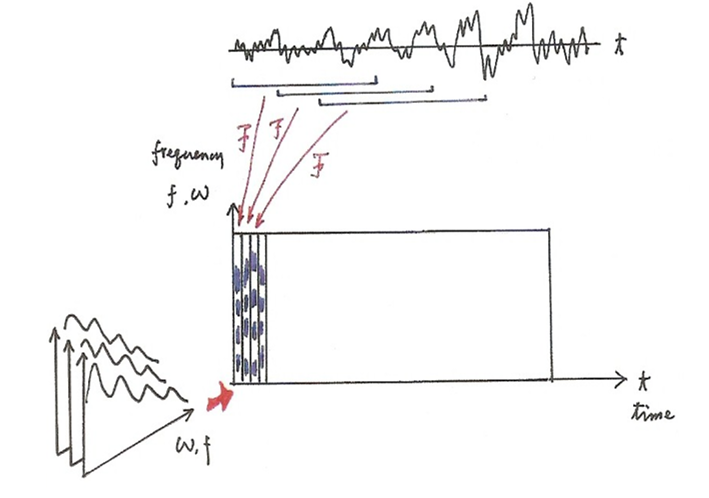 t
F F
F
frequency
f, ω
t
time
ω, f